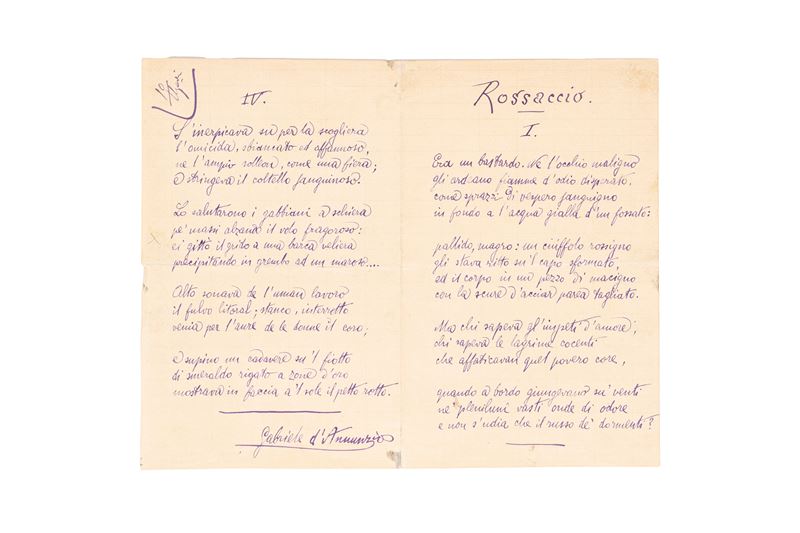 IV.
S'inerpicava su per la scogliera
l'omicida, sbiancato ed affannoso,
ne l'ampio solleon, come una fiera;
e stringeva il coltello sanguinoso.
Lo salutarono i gabbiani a schiera
pe' massi alzando il volo fragoroso:
ei gittò il grido a una barca veliera
precipitando in grembo ad un maroso....
Alto sonava de l'uman lavoro
il fulvo litoral; stanco, interrotto
venìa per l'aure de le donne il coro;
e supino un cadavere su 'l fiotto
di smeraldo rigato a zone d'oro
mostrava in faccia a 'l sole il petto rotto.
Gabriele d'Annunzio
Rossaccio.
I.
Era un bastardo. Ne l'occhio maligno
gli ardeano fiamme d'odio disperato,
come sprazzi di vespero sanguigno
in fondo a l'acqua gialla d'un fossato:
pallido, magro: un ciuffolo rossigno
gli stava ritto su 'l capo sformato,
ed il corpo in un pezzo di macigno
con la scure d'acciar parea tagliato.
Ma chi sapeva gl'impeti d'amore,
chi sapeva le lagrime cocenti
che affaticavan quel povero core,
quando a bordo giungevano su' venti
ne' pleniluni vasti onde di odore
e non s'udia che il russo de' dormenti?